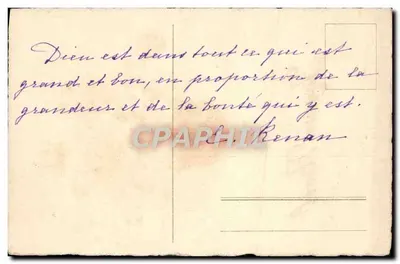 Dieu est dans tout ce qui est
grand et bon, en proportion de la
grandeur et de la bonté qui y est.
CPARAMA
E. Renan